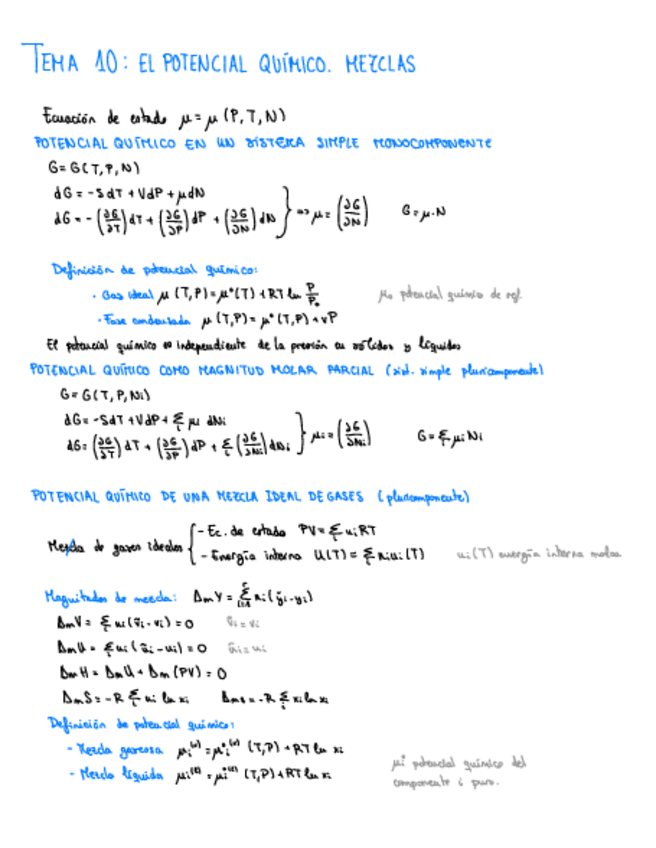 TEMA 10: EL POTENCIAL QUÍMICO. MEZCLAS
Ecuación de estado μ = μ (P, T, N)
POTENCIAL QUÍMICO EN UN SISTEMA SIMPLE MONOCOMPONENTE
G = G(T, P, N)
dG = -SdT + VdP + μdN
dG = -(∂G/∂T) dT + (∂G/∂P) dP + (∂G/∂N) dN } => μ = (∂G/∂N) G = μ·N
Definición de potencial químico:
· Gas ideal μ (T, P) = μ°(T) + RT ln P/P₀
μ₀ potencial químico de ref.
· Fase condensada μ (T, P) = μ°(T, P) + vP
El potencial químico es independiente de la presión en sólidos y líquidos
POTENCIAL QUÍMICO COMO MAGNITUD MOLAR PARCIAL (sist. simple pluricomponente)
G = G(T, P, Ni)
dG = -SdT + VdP + Σi μi dNi
dG = (∂G/∂T) dT + (∂G/∂P) dP + Σi (∂G/∂Ni) dNi } μi = (∂G/∂Ni) G = Σi μi Ni
POTENCIAL QUÍMICO DE UNA MEZCLA IDEAL DE GASES (pluricomponente)
Mezcla de gases ideales { - Ec. de estado PV = Σi niRT
- Energía interna U(T) = Σi niui(T) ui(T) energía interna molar
Magnitudes de mezcla: ΔmY = Σ ni(ỹi - yi)
ΔmV = Σi ni(ṽi - vi) = 0 ṽi = vi
ΔmU = Σi ni(ũi - ui) = 0 ũi = ui
ΔmH = ΔmU + Δm(PV) = 0
ΔmS = -R Σi ni ln xi Δms = -R Σi xi ln xi
Definición de potencial químico:
- Mezcla gaseosa μi⁽ᵛ⁾ = μ*i⁽ᵛ⁾ (T,P) + RT ln xi
- Mezcla líquida μi⁽ˡ⁾ = μ*i⁽ˡ⁾ (T,P) + RT ln xi
μi* potencial químico del
componente i puro.